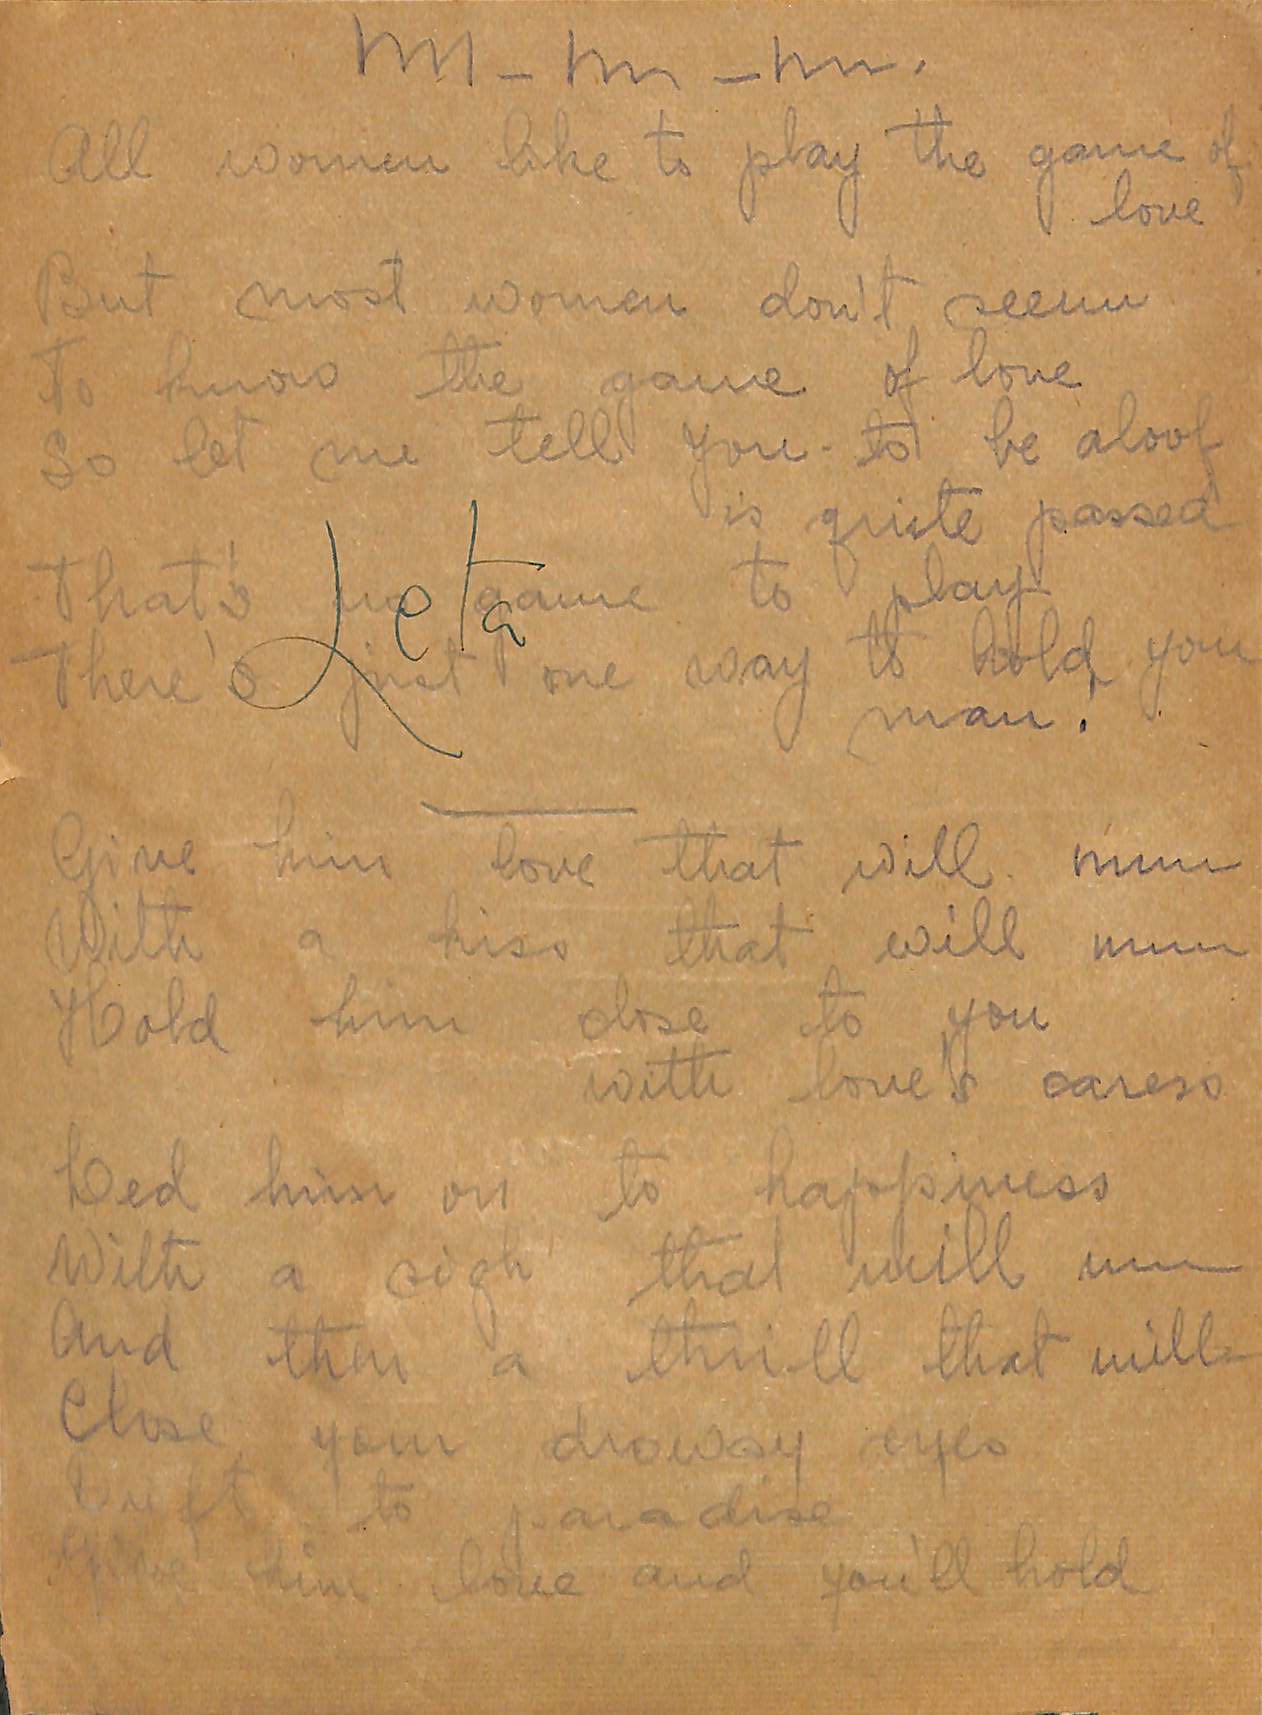 M - m - m.
All women like to play the game of
love
But most women don't seem
To know the game of love
So let me tell you - to be aloof
is quite passed
That's no game to play
Leta
There's just one way to hold you
man.
Give him love that will mmm
With a kiss that will mmm
Hold him close to you
with love's caress
Led him on to happiness
With a sigh that will mm
And then a thrill that will
Close your drowsy eyes
Drift to paradise
Give him love and you'll hold